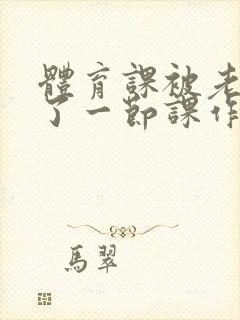 體育課被老
了一節課作
馬翠